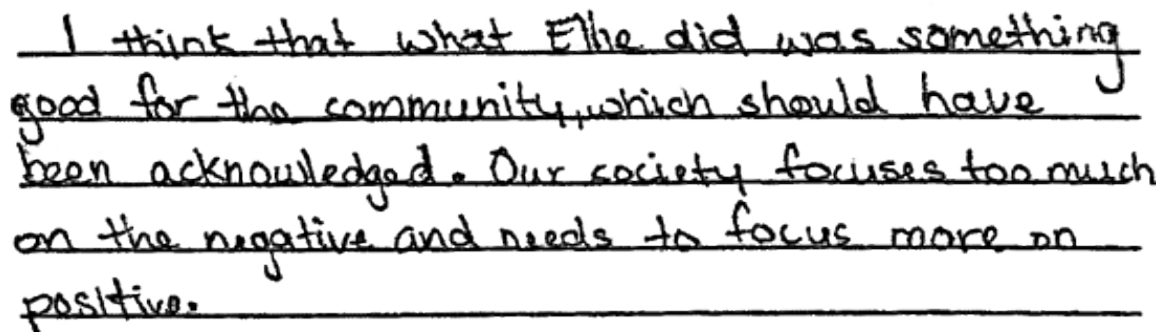 I think that what Ellie did was something
good for the community, which should have
been acknowledged. Our society focuses too much
on the negative and needs to focus more on
positive.